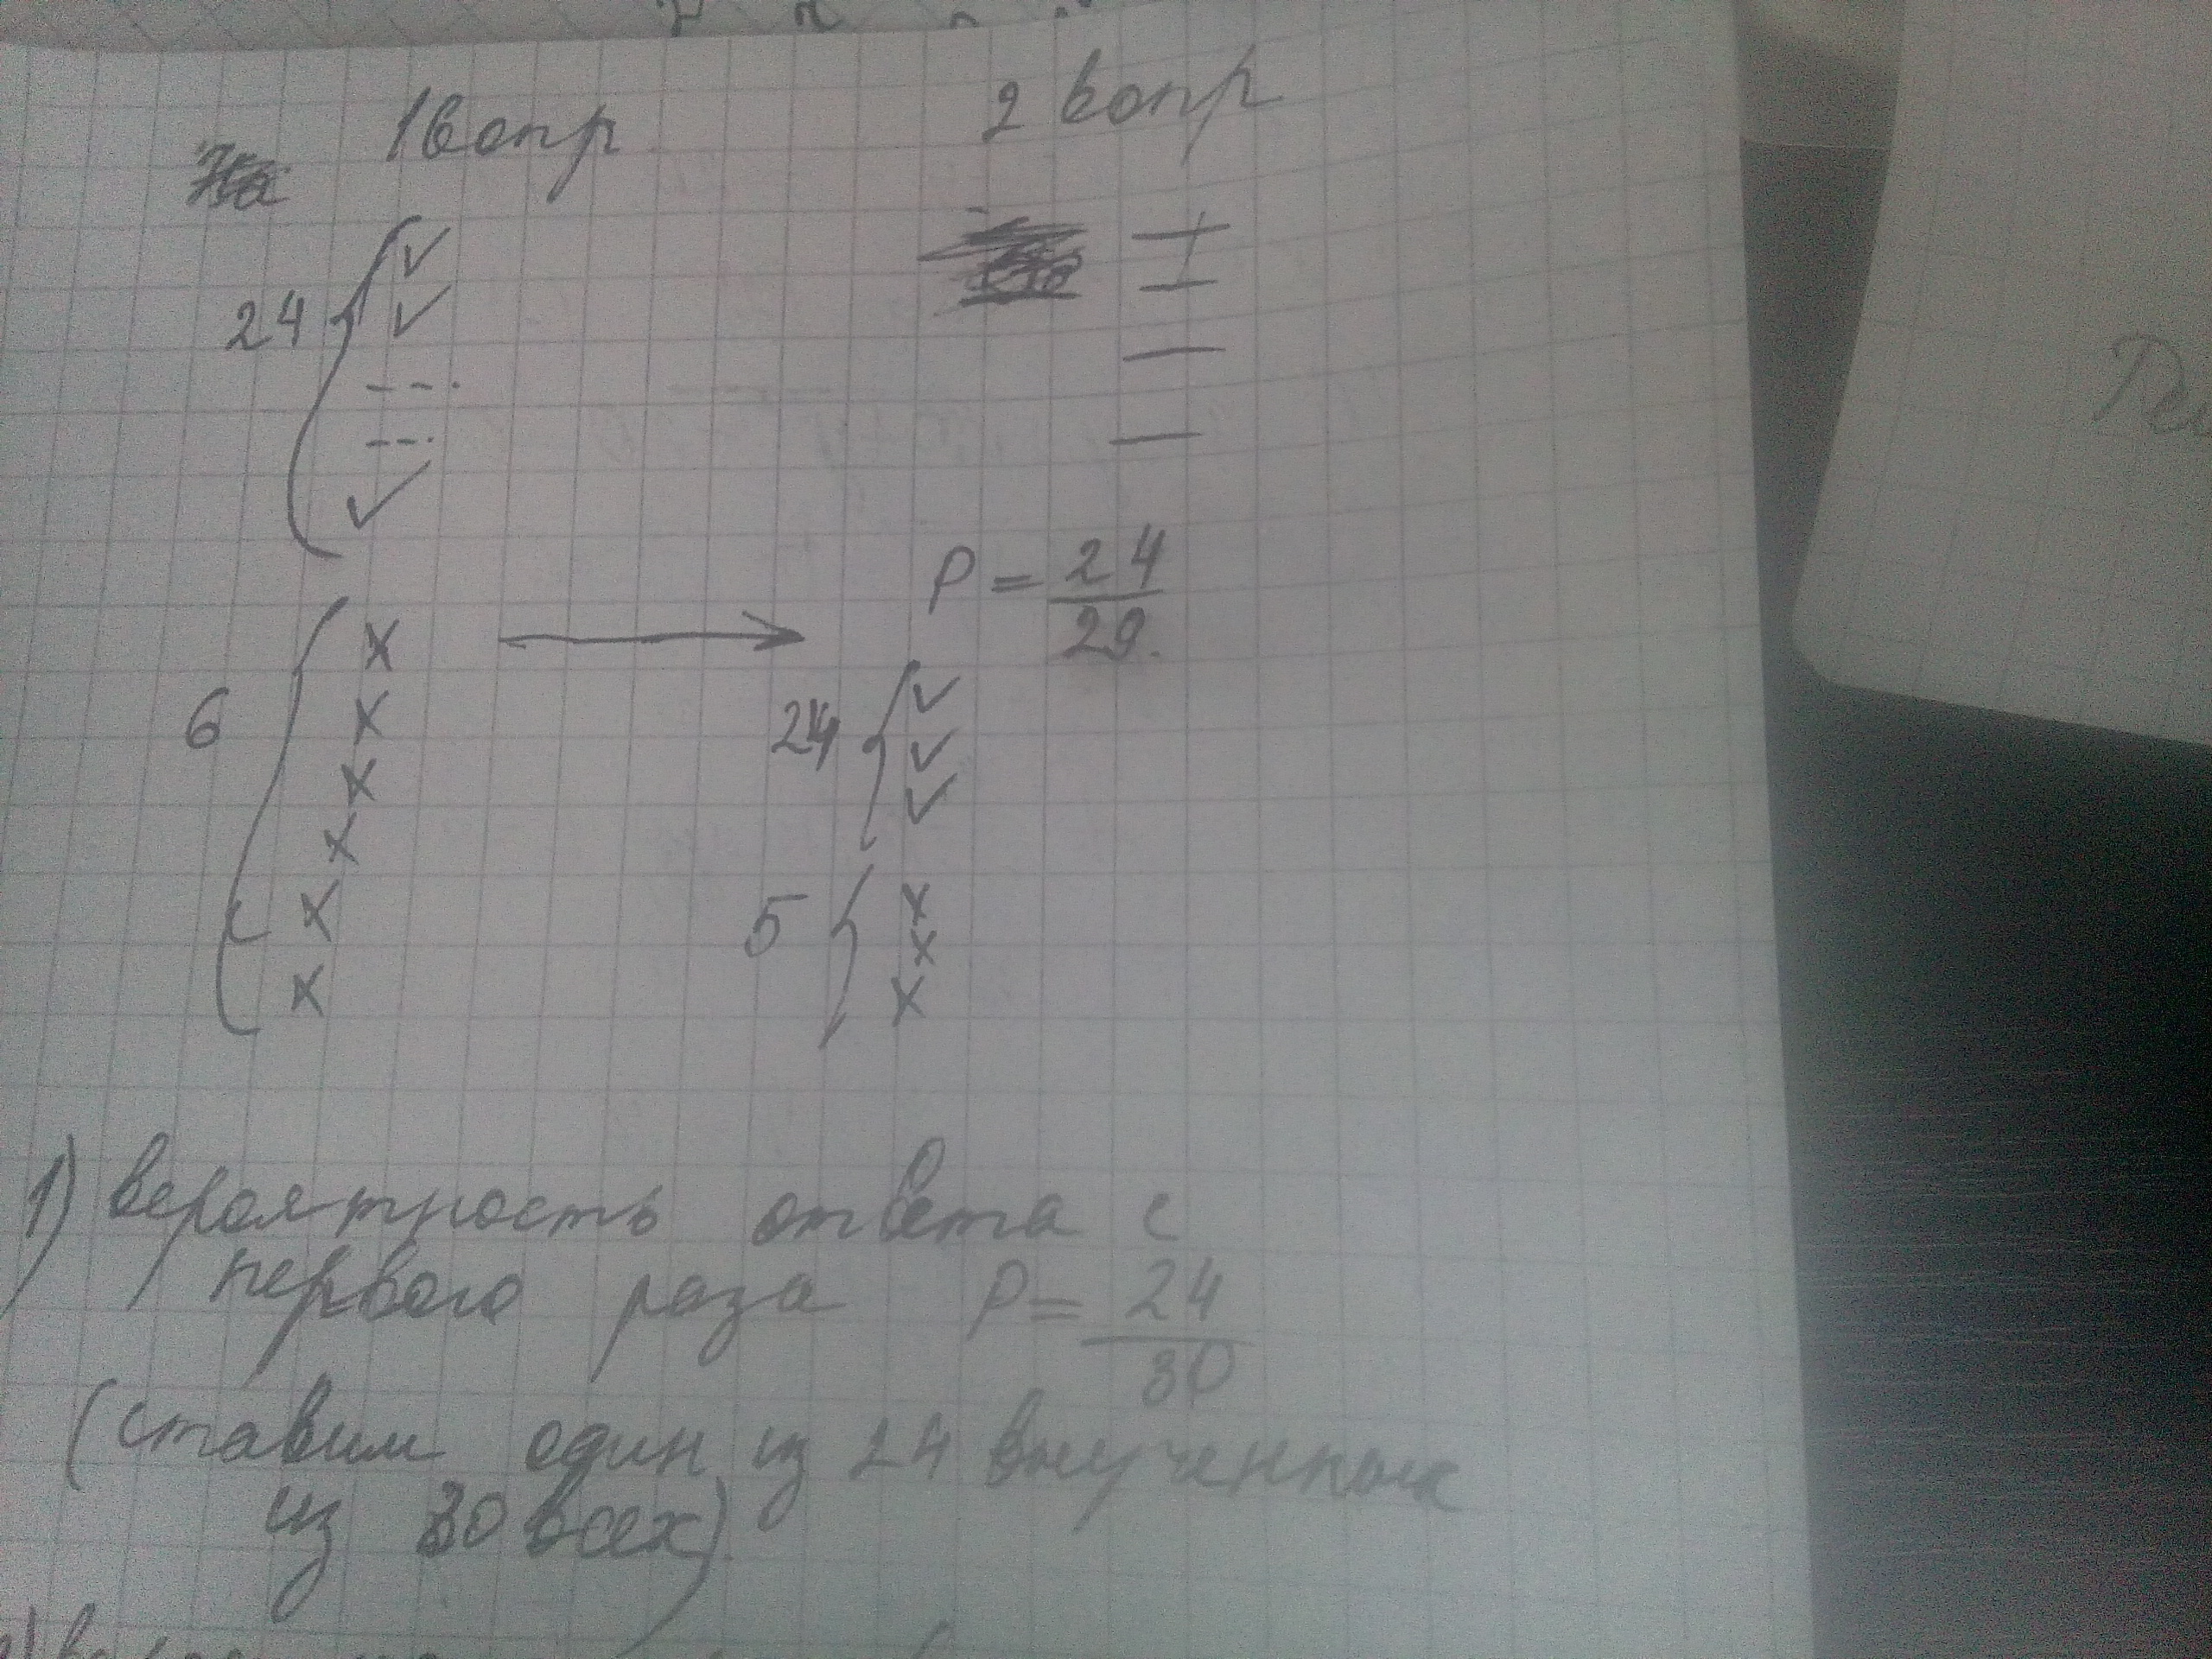 1 вопр 2 вопр
24
P = 24/29.
6
24
5
1) вероятность ответа с
первого раза P = 24/30
(ставим один из 24 выученных
из 30 всех)